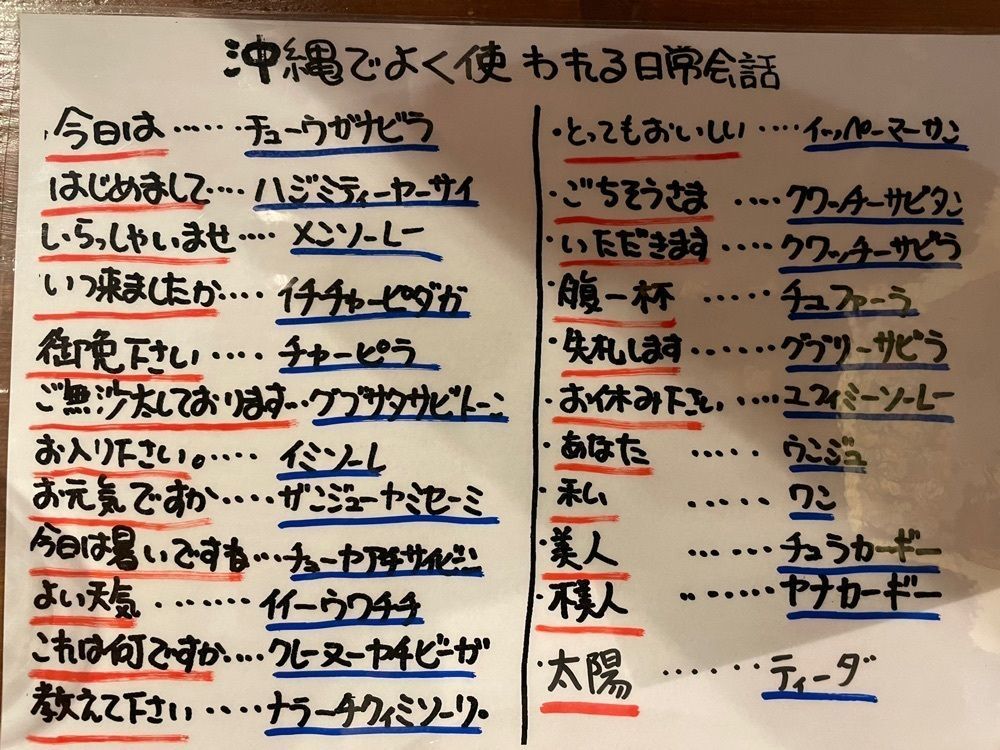 沖縄でよく使われる日常会話
今日は・・・・・チューウガナビラ
はじめまして・・・・ハジミティーヤーサイ
いらっしゃいませ・・・・メンソーレー
いつ来ましたか・・・・イチチャービダガ
御免下さい・・・・チャービラ
ご無沙太しております・・・グブサタサビトーン
お入り下さい。・・・・イミソーレ
お元気ですか・・・・・ガンジューヤミセーミ
今日は暑いですね・・・チューヤアチサイビーン
よい天気・・・・・・イイーウワチチ
これは何ですか・・・・クレーヌーヤチビーガ
教えて下さい・・・・・ナラーチクィミソーリ・
・とってもおいしい・・・・イッペーマーサン
・ごちそうさま・・・・クワッチーサビタン
・いただきます・・・・クワッチーサビラ
・腹一杯・・・・・チュファーラ
・失礼します・・・・・・グブリーサビラ
・お休み下さい・・・・・ユフィミーソーレー
・あなた・・・・・ウンジュ
・私・・・・・ワン
・美人・・・・・・チュラカーギー
・撲人・・・・・・ヤナカーギー
・太陽・・・・・・ティーダ